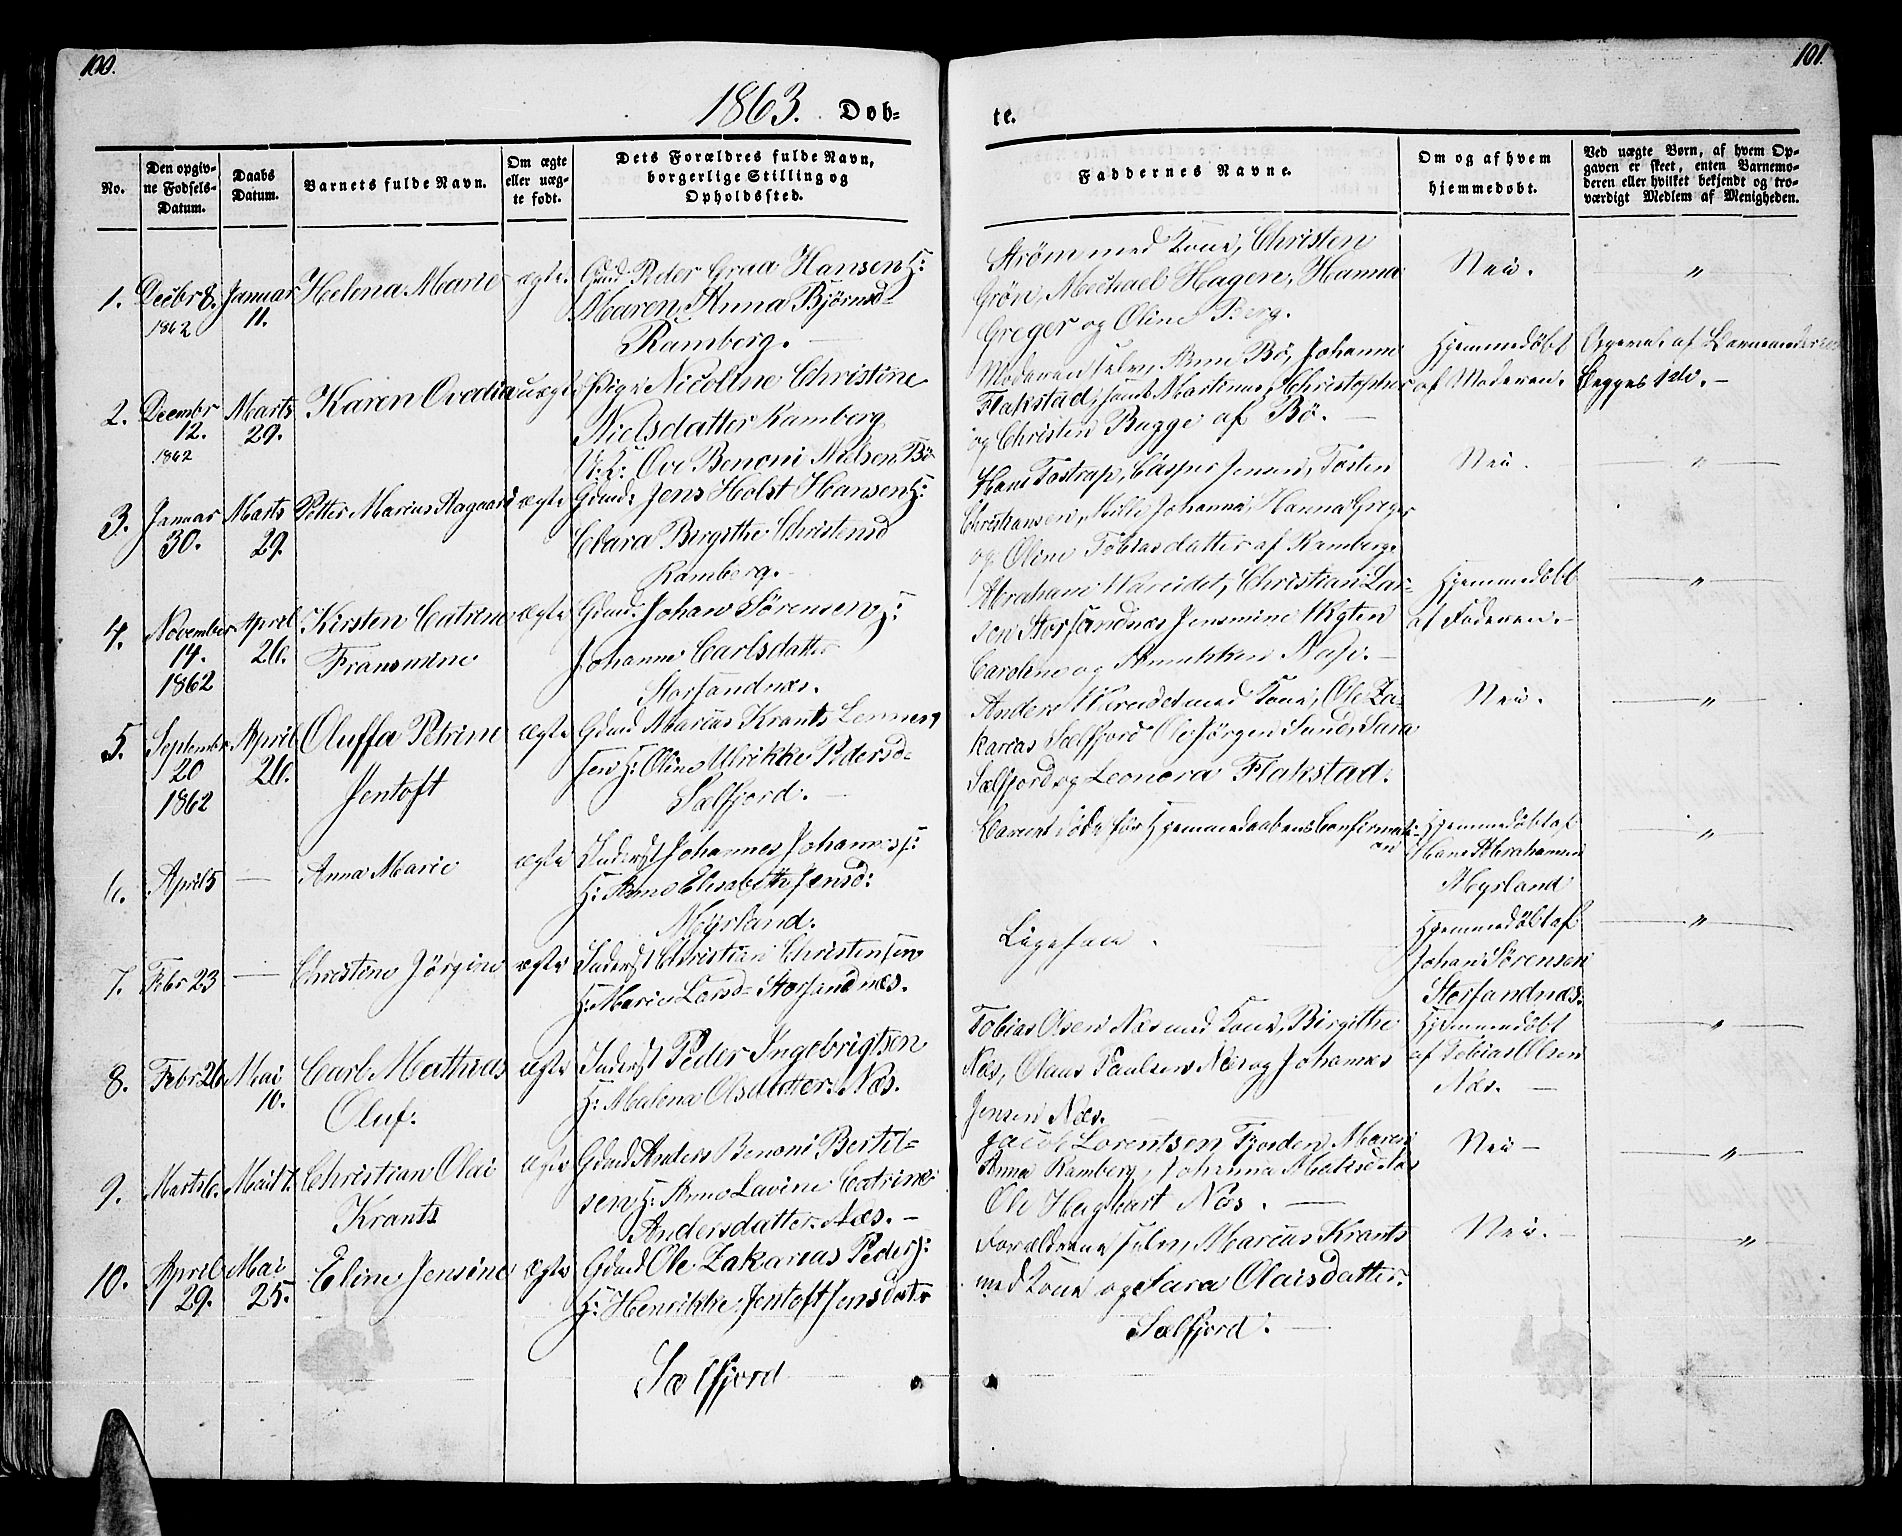 100.
101.
1863. Døb-
te.
No.
Den opgiv-
ne Fødsels-
Datum.
Daabs
Datum.
Barnets fulde Navn.
Om ægte
eller uæg-
te født.
Dets Forældres fulde Navn,
borgerlige Stilling og
Opholdssted.
Faddernes Navne.
Om og af hvem
hjemmedøbt.
Ved uægte Børn, af hvem Op-
gaven er skeet, enten Barnemo-
deren eller hvilket bekjendt og tro-
værdigt Medlem af Menigheden.
1.
Decbr 8.
1862
Januar
11.
Helena Marie
ægte
Gmd Peder Graa Hansen H:
Maren Anna Bjørnsd-
Ramberg.
Strøm med Kone, Christen
Grön, Michael Hagen, Hanna
Greger og Oline Berg.
Nei.
"
2.
Decembr
12.
1862
Marts
29.
Karen Ovedia
uægte
Pige Nicoline Christine
Nielsdatter Ramberg
U:K: Ove Benoni Nielsen Bö
Moderen selv, Ane Bö, Johanne
Flakstad, samt Martinus Christopher
og Christen Bugge af Bö.
Hjemmedöbt
af Moderen.
Opgivet af Barnemoderen
Begges 1ste.
3.
Januar
30.
Marts
29.
Petter Marius Aagaard
ægte
Gmd: Jens Holst Hansen H:
Clara Birgithe Christensd
Ramberg.
Hans Tostrup, Casper Jensen, Tosten
Christiansen, Johanna, Hanna Greger
og Oline Tobiasdatter af Ramberg.
Nei.
"
4.
November
14.
1862
April
26.
Kirsten Catrine
Fransmine
ægte
Gmd. Johan Sörensen H:
Johanne Carlsdatter
Storsandnæs.
Abraham Vareidet, Christian Lar-
sen Storsandnæs Jensmine Vigten
Caroline og Annikken Næss.
Hjemmedöbt
af Faderen.
"
5.
Septembr
20
1862
April
26.
Oluffa Petrine
Jentoft
ægte
Gmd Marius Krants Lenner,
sen H: Oline Ulrikke Pedersd-
Sælfjord.
Anders Vareidet med Kone, Ole Za-
karias Sælfjord Ole Jörgen Sund, Sara
Sælfjord og Leonora Flakstad.
Nei.
"
6.
April 5
Anna Marie
ægte
Inderst Johannes Johannes s:
H: Anne Elisabeth Jensd:
Mysland.
Barnet döde för Hjemmedaabens Confirmati-
on
Hjemmedöbt af
Hans Abrahamsen
Mysland
"
7.
Febr 23
Christine Jörgine
ægte
Inderst Christian Christensen
H: Marie Larsd- Storsandnæs.
Ligesaa.
Hjemmedöbt af
Johan Sörensen
Storsandnæs.
"
8.
Febr 26
Mai
10.
Carl Mathias
Oluf.
ægte
Inderst Peder Ingebrigtsen
H: Malena Olsdatter Næs.
Tobias Olsen Næs med Kone, Birgithe
Næs, Olaus Paulsen Næs og Johannes
Jensen Næs.
Hjemmedöbt
af Tobias Olsen
Næs.
"
9.
Marts 6.
Mai 17.
Christian Olai
Krants
ægte
Gmd Anders Benoni Bertil-
sen H: Anne Lavine Catrine
Andersdatter Næs.
Jacob Lorentsen Fjorden, Maren
Anna Ramberg, Johanna Næs
Ole Hagbart Næs.
Nei
"
10.
April
29.
Mai
25.
Eline Jensine
ægte
Gmd Ole Zakarias Peders:
H: Henrikke Jentoft Jensdatr
Sælfjord
Forældrene selv, Marcus Krants
med Kone og Sara Olaisdatter.
Sælfjord.
Nei.
"